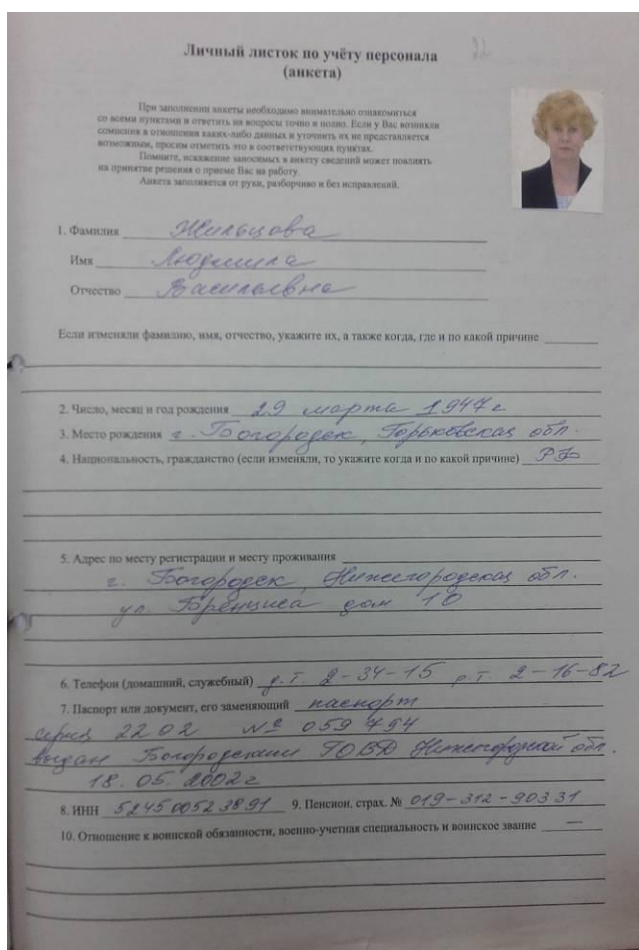 22
Личный листок по учёту персонала
(анкета)
При заполнении анкеты необходимо внимательно ознакомиться
со всеми пунктами и ответить на вопросы точно и полно. Если у Вас возникли
сомнения в отношении каких-либо данных и уточнить их не представляется
возможным, просим отметить это в соответствующих пунктах.
Помните, искажение заносимых в анкету сведений может повлиять
на принятие решения о приеме Вас на работу.
Анкета заполняется от руки, разборчиво и без исправлений.
1. Фамилия Жильцова
Имя Людмила
Отчество Васильевна
Если изменяли фамилию, имя, отчество, укажите их, а также когда, где и по какой причине
2. Число, месяц и год рождения 29 марта 1947г
3. Место рождения г. Богородск, Горьковская обл.
4. Национальность, гражданство (если изменяли, то укажите когда и по какой причине) РФ
5. Адрес по месту регистрации и месту проживания
г. Богородск, Нижегородская обл.
ул. Бренциса дом 10
6. Телефон (домашний, служебный) д.т. 2-34-15 р.т. 2-16-82
7. Паспорт или документ, его заменяющий паспорт
серия 22 02 № 059 494
выдан Богородским ГОВД Нижегородской обл.
18. 05. 2002г
8. ИНН 524500523891 9. Пенсион. страх. № 019-312-903 31
10. Отношение к воинской обязанности, военно-учетная специальность и воинское звание —